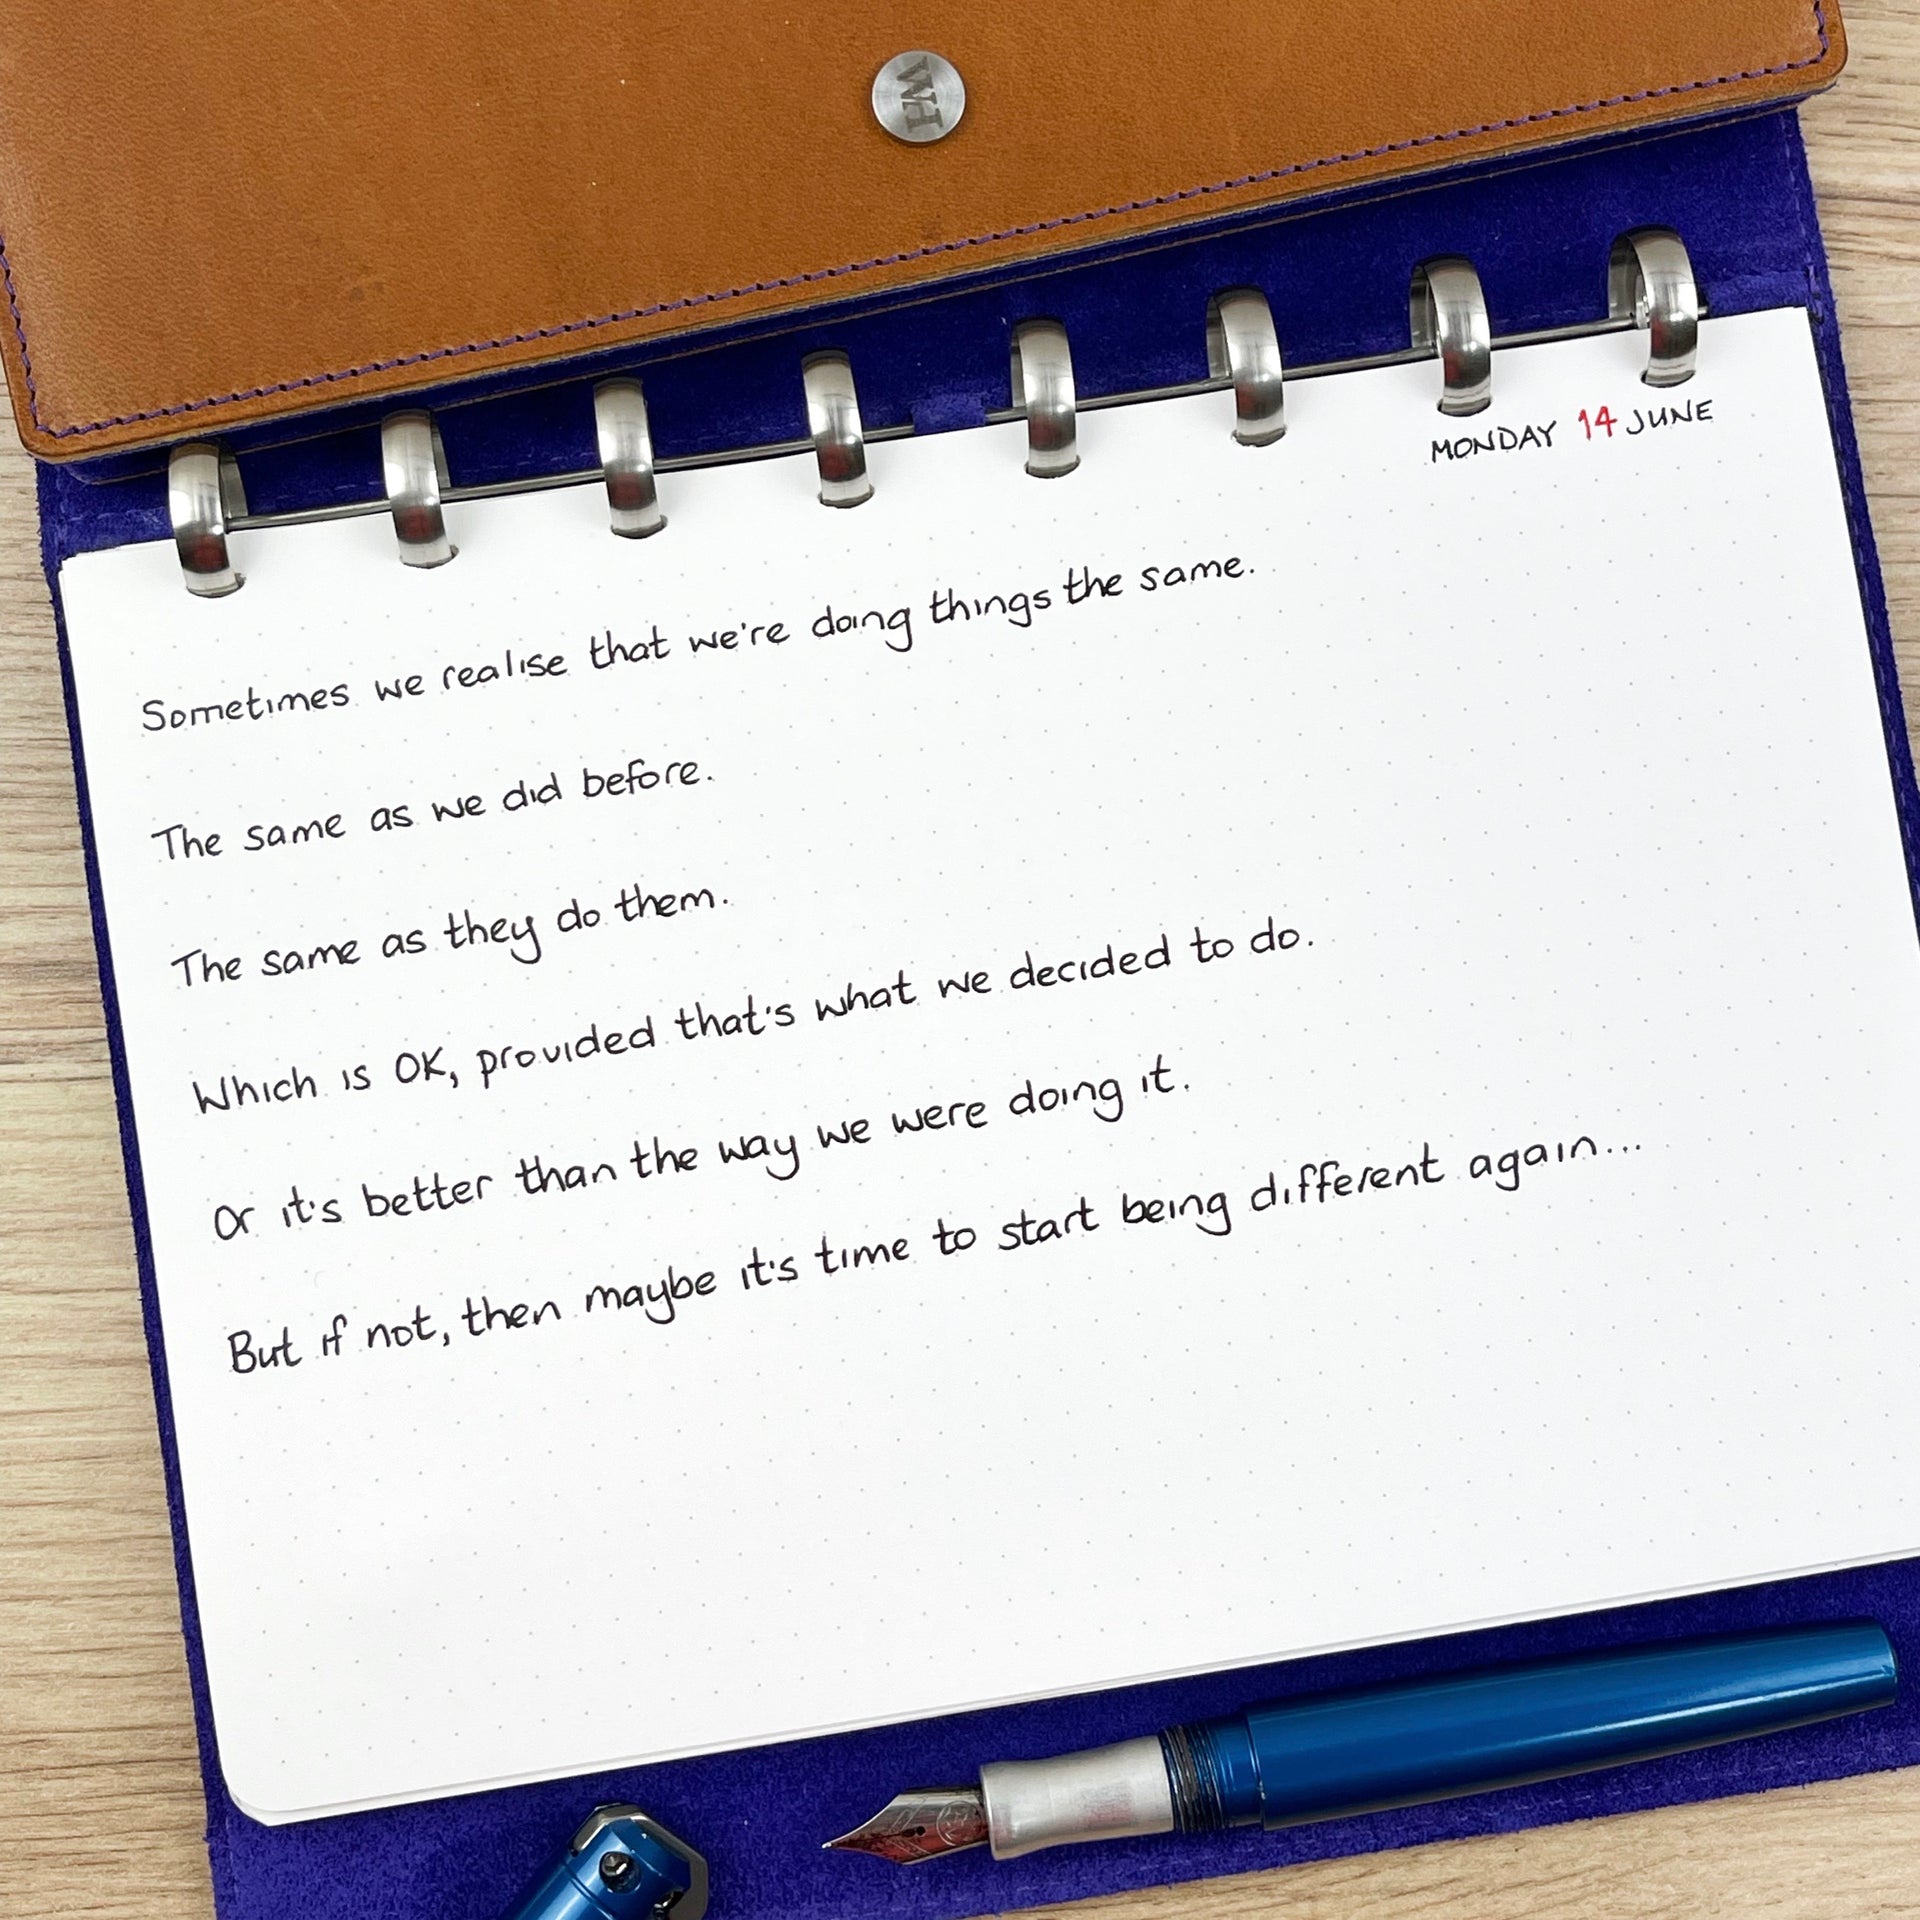 WH
MONDAY 14 JUNE
Sometimes we realise that we're doing things the same.
The same as we did before.
The same as they do them.
Which is OK, provided that's what we decided to do.
Or it's better than the way we were doing it.
But if not, then maybe it's time to start being different again...